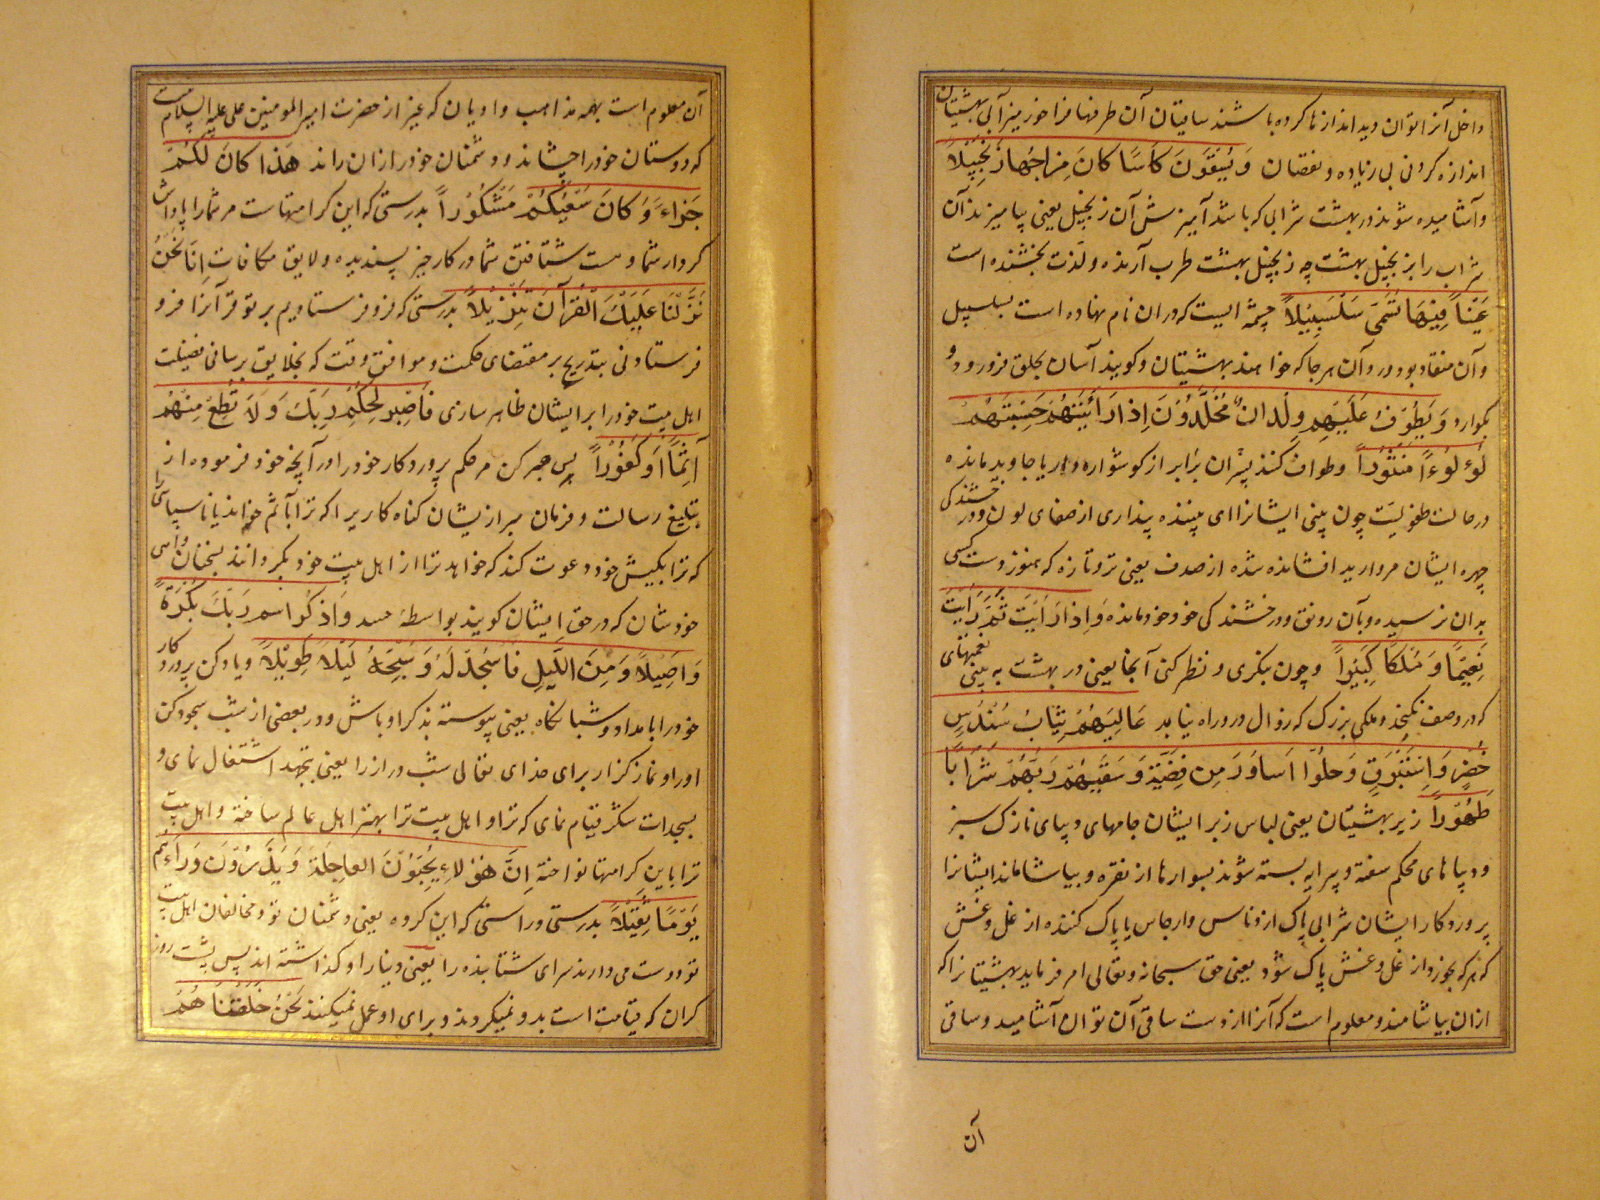 داخل آنرا توان دید اندازها کرده باشند ساقیان آن ظرفها فراخور میزابی بهشتیان
اندازه کردنی بی زیاده و نقصان وَيُسْقَوْنَ كَأْسًا كَانَ مِزَاجُهَا زَنْجَبِيلًا
و آشامیده شوند در بهشت شرابی که باشد آمیزش آن زنجبیل یعنی بیامیزند آن
شراب را بزنجبیل بهشت چه زنجبیل بهشت طرب آرنده و لذت بخشنده است
عَيْنًا فِيهَا تُسَمَّى سَلْسَبِيلًا چشمه ایست که در آن نام نهاده است سلسبیل
و آن منقاد بود در و آن هر جا که خواهند بهشتیان و گویند آسان بحلق فرو رود و
بگوارد وَيَطُوفُ عَلَيْهِمْ وِلْدَانٌ مُخَلَّدُونَ إِذَا رَأَيْتَهُمْ حَسِبْتَهُمْ
لُؤْلُؤًا مَنْثُورًا و طواف کنند پسران برابر از گوشواره داریا جاوید مانده
در حالت طفولیت چون بینی ایشانرا ای بیننده پنداری از صفای لون و درخشندگی
چهره ایشان مروارید افشانده شده از صدف یعنی تر و تازه که هنوز دست کسی
بدان نرسیده و بآن رونق و درخشندگی خود مانده وَإِذَا رَأَيْتَ ثَمَّ رَأَيْتَ
نَعِيمًا وَمُلْكًا كَبِيرًا و چون بنگری و نظر کنی آنجا یعنی در بهشت به بینی نعمتهای
که در وصف نگنجد و ملکی بزرگ که زوال در و راه نیابد عَالِيَهُمْ ثِيَابُ سُنْدُسٍ
خُضْرٌ وَإِسْتَبْرَقٌ وَحُلُّوا أَسَاوِرَ مِنْ فِضَّةٍ وَسَقَاهُمْ رَبُّهُمْ شَرَابًا
طَهُورًا زیر بهشتیان یعنی لباس زبر ایشان جامهای دیبای نازک سبز
و دیباهای محکم سفته و پیرایه بسته شوند بسوارها از نقره و بیاشاماند ایشانرا
پروردکار ایشان شرابی پاک از ادناس و ارجاس یا پاک کننده از غل و غش
که هر که بخورد از غل و غش پاک شود یعنی حق سبحانه و تعالی امر فرماید بهشتیانرا که
از آن بیاشامند و معلوم است که آنرا از دست ساقی آن توان آشامید و ساقی
آن
آن معلوم است بهمه مذاهب و ادیان که غیر از حضرت امیر المومنین علی علیه السلام نیست
که دوستان خود را چشاند و دشمنان خود را از آن راند هَذَا كَانَ لَكُمْ
جَزَاءً وَكَانَ سَعْيُكُمْ مَشْكُورًا بدرستی که این کرامتهاست مر شما را پاداش
کردار شما و هست شتافتن شما در کار خیر پسندیده و لایق مکافات إِنَّا نَحْنُ
نَزَّلْنَا عَلَيْكَ الْقُرْآنَ تَنْزِيلًا بدرستی که فرو فرستادیم بر تو قرآنرا فرو
فرستادنی بتدریج بر مقتضای حکمت و موافق وقت که بخلایق برسانی فضیلت
اهل بیت خود را بر ایشان ظاهر سازی فَاصْبِرْ لِحُكْمِ رَبِّكَ وَلَا تُطِعْ مِنْهُمْ
آثِمًا أَوْ كَفُورًا پس صبر کن مر حکم پروردکار خود را در آنچه خود فرموده از
تبلیغ رسالت و فرمان مبر از یشان کناه کاریرا که ترا باثم خواند یا ناسپاسی را
که ترا بکیش خود دعوت کند که خواهد ترا از اهل بیت خود بگرداند بسخنان واهی
خودشان که در حق ایشان گویند بواسطهٔ حسد وَاذْكُرِ اسْمَ رَبِّكَ بُكْرَةً
وَأَصِيلًا وَمِنَ اللَّيْلِ فَاسْجُدْ لَهُ وَسَبِّحْهُ لَيْلًا طَوِيلًا و یاد کن پروردکار
خود را بامداد و شبانگاه یعنی پیوسته بذکر او باش و در بعضی از شب سجود کن
او را و نماز کزار برای خدای تعالی شب دراز را یعنی بتهجد اشتغال نمای و
بسجدات شکر قیام نمای که ترا و اهل بیت ترا بهتر اهل عالم ساخته و اهل بیت
ترا باین کرامتها نواخته إِنَّ هَؤُلَاءِ يُحِبُّونَ الْعَاجِلَةَ وَيَذَرُونَ وَرَاءَهُمْ
يَوْمًا ثَقِيلًا بدرستی و راستی که این کروه یعنی دشمنان تو و مخالفان اهل بیت
تو دوست می دارند سرای شتابنده را یعنی دنیا را و گذاشته اند پس پشت روز
گران که قیامت است بدو نمیگروند و برای او عمل نمیکنند نَحْنُ خَلَقْنَاهُمْ